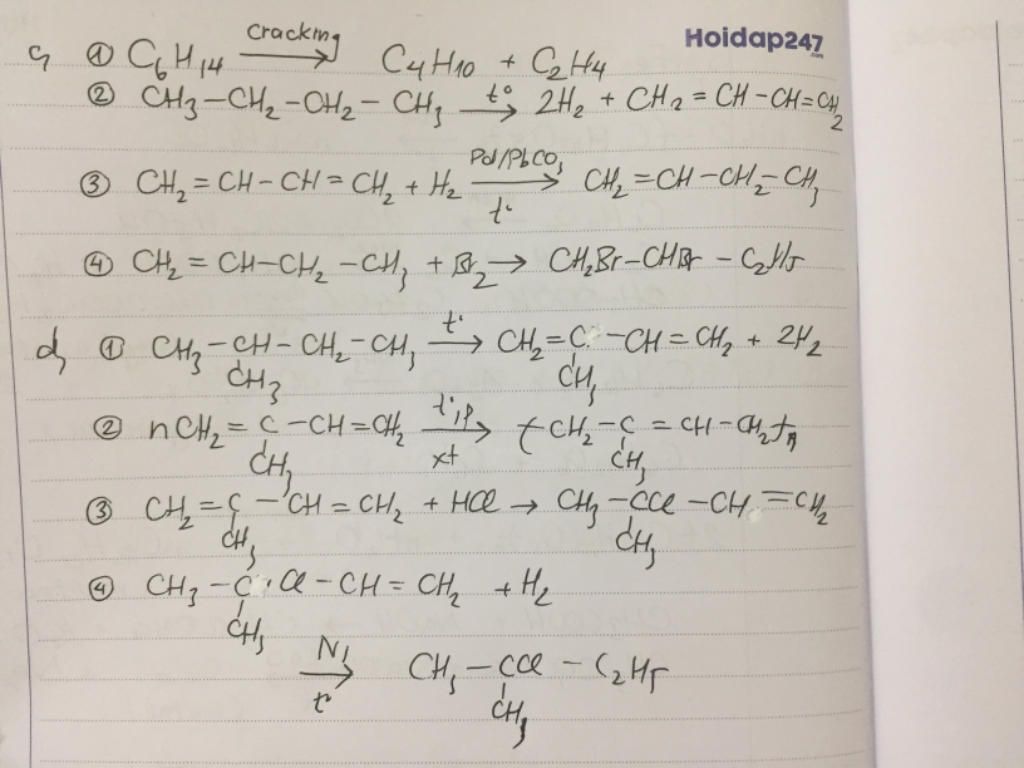 Hoidap247
.com
c, ① C₆H₁₄ —Cracking→ C₄H₁₀ + C₂H₄
② CH₃–CH₂–CH₂–CH₃ —t°→ 2H₂ + CH₂=CH–CH=CH₂
③ CH₂=CH–CH=CH₂ + H₂ —Pd/PbCO₃, t°→ CH₂=CH–CH₂–CH₃
④ CH₂=CH–CH₂–CH₃ + Br₂ → CH₂Br–CHBr–C₂H₅
d, ① CH₃–CH–CH₂–CH₃ —t°→ CH₂=C–CH=CH₂ + 2H₂
CH₃ CH₃
② nCH₂=C–CH=CH₂ —t°,p, xt→ (CH₂–C=CH–CH₂)ₙ
CH₃ CH₃
③ CH₂=C–CH=CH₂ + HCl → CH₃–CCl–CH=CH₂
CH₃ CH₃
④ CH₃–C·Cl–CH=CH₂ + H₂
CH₃
—Ni, t°→ CH₃–CCl–C₂H₅
CH₃